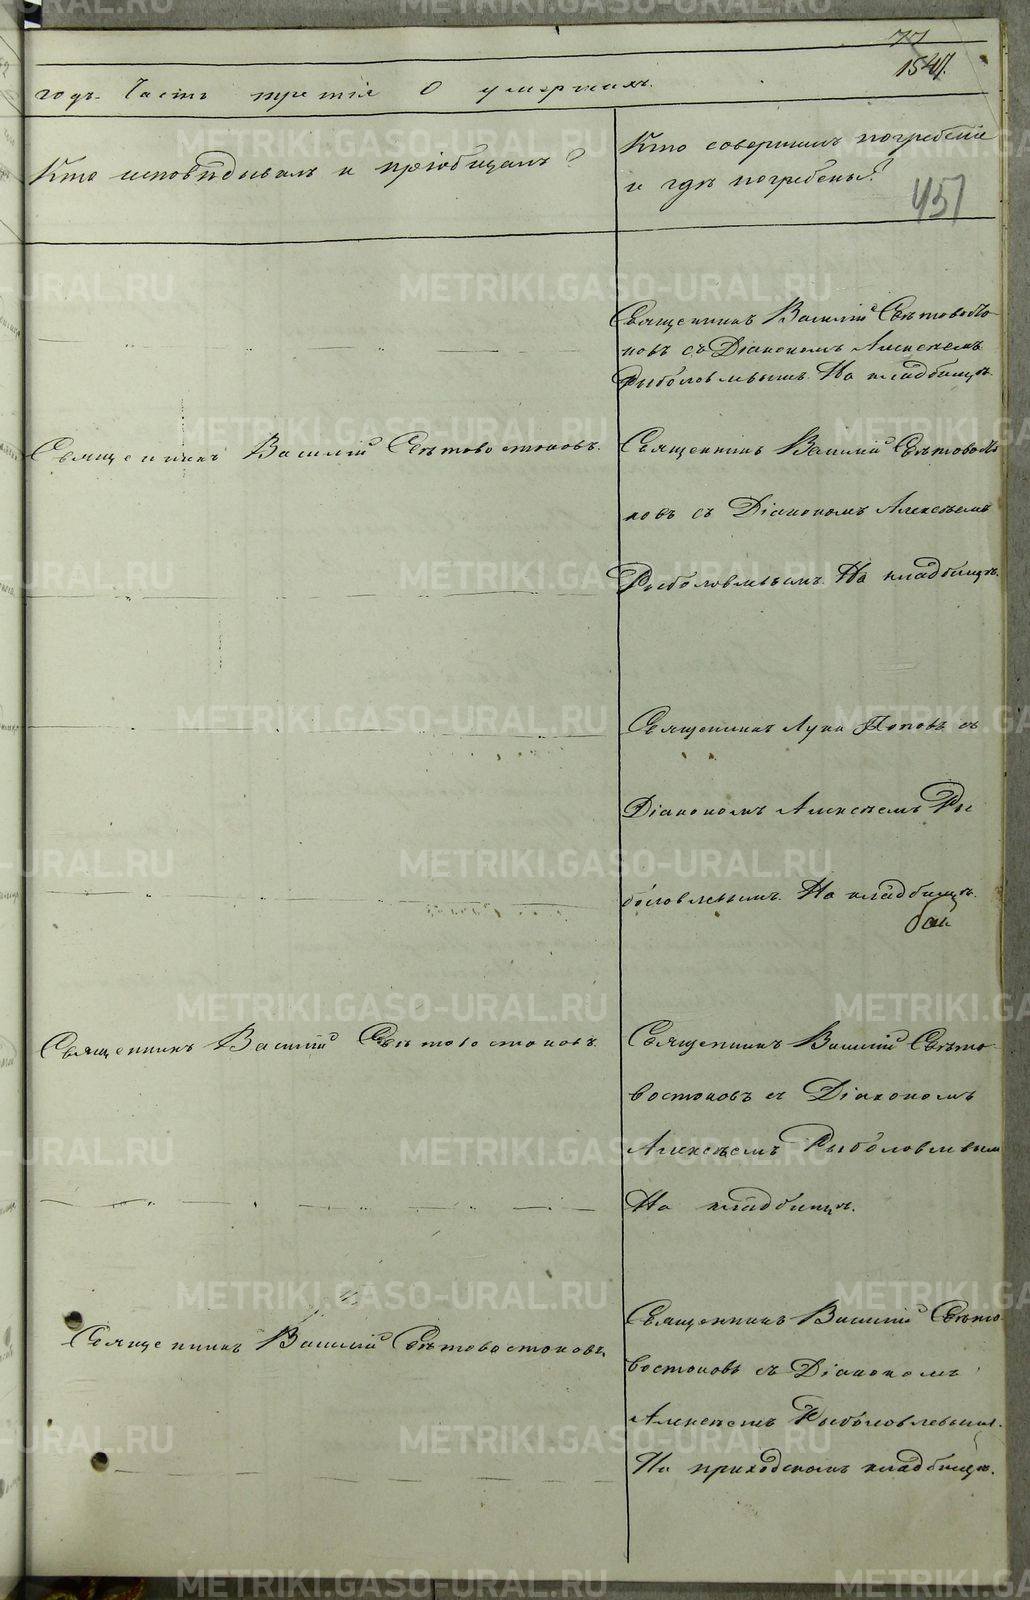 77
1547.
годъ. Часть третія О умершихъ.
Кто исповѣдывалъ и пріобщалъ?
Кто совершилъ погребеніе
и гдѣ погребены?
457
Священникъ Василій Свѣтовосто-
ковъ съ Діакономъ Алексѣемъ
Рыболовлевымъ. На кладбищѣ.
Священникъ Василій Свѣтовостоковъ.
Священникъ Василій Свѣтовосто
ковъ съ Діакономъ Алексѣемъ
Рыболовлевымъ. На кладбищѣ.
Священникъ Лука Поповъ съ
Діакономъ Алексѣемъ Ры
боловлевымъ. На кладбищѣ.
Священникъ Василій Свѣтовостоковъ.
Священникъ Василій Свѣто-
востоковъ съ Діакономъ
Алексѣемъ Рыболовлевым
На кладбищѣ.
Священникъ Василій Свѣтовостоковъ.
Священникъ Василій Свѣто
востоковъ съ Діакономъ
Алексѣемъ Рыболовлевымъ.
На приходскомъ кладбищѣ.
METRIKI.GASO-URAL.RU